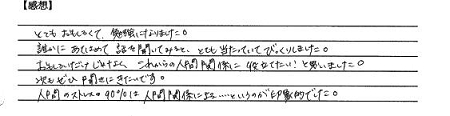 【感想】
とてもおもしろくて、勉強になりました。
誰かにあてはめて話を聞いてみると、とても当たっていてびっくりしました。
おもしろいだけじゃなく、これからの人間関係に役立てたい!と思いました。
次もぜひ聞きにきたいです。
人間のストレスの90%は人間関係による…というのが印象的でした。